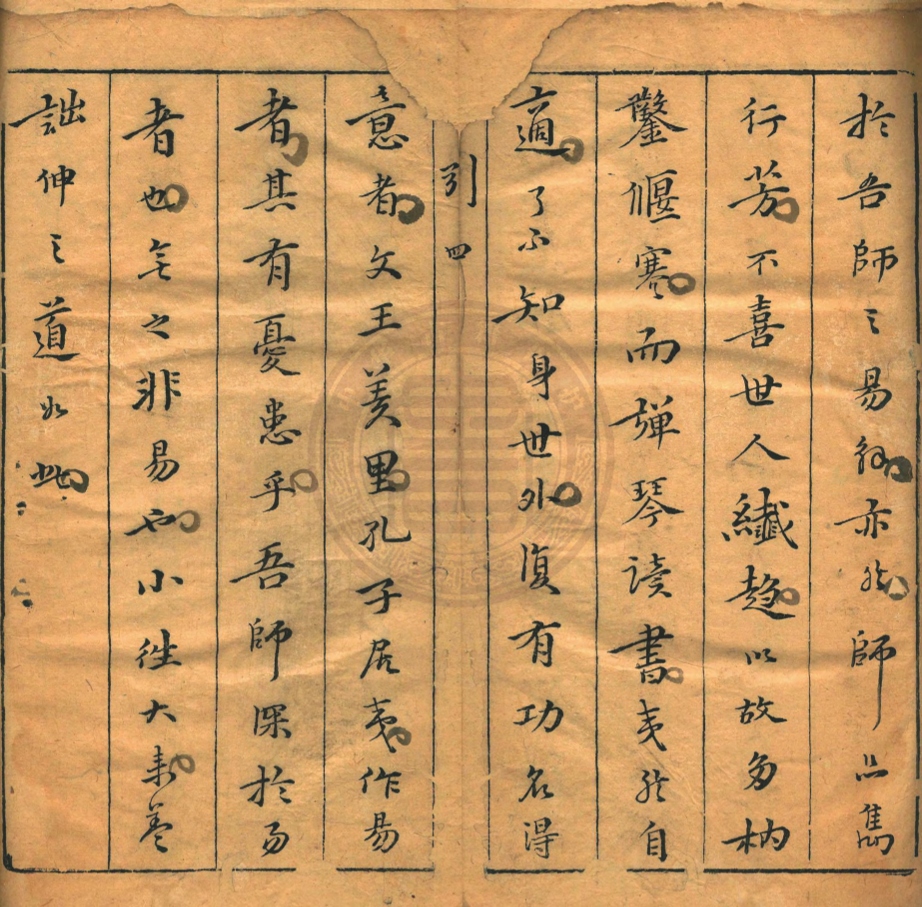 於吾師之易解亦然師品雋
行芳不喜世人纖趨以故多枘
鑿偃蹇而彈琴讀書夷然自
適了不知身世外復有功名得
引四
意者文王羑里孔子居夷作易
者其有憂患乎吾師深於易
者也無之非易也小徃大来蓋
詘伸之道如此